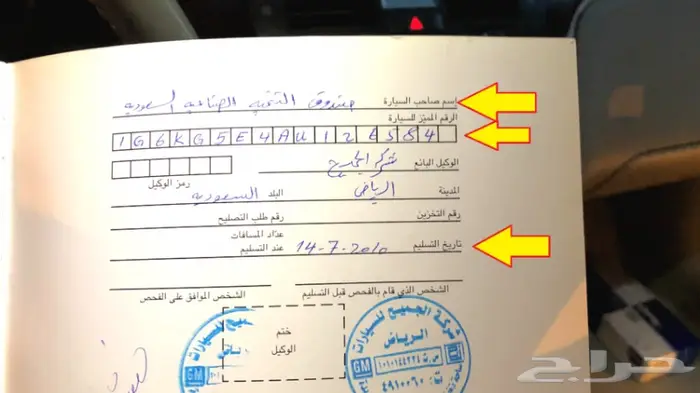 إسم صاحب السيارة صندوق التنمية الصناعية السعودية
الرقم المميّز للسيارة
1G6KG5E4AU12E584
الوكيل البائع شركة الجميح
رمز الوكيل
المدينة الرياض البلد السعودية
رقم التخزين رقم طلب التصليح
عدّاد المسافات
تاريخ التسليم 14-7-2010 عند التسليم
الشخص الذي قام بالفحص قبل التسليم الشخص الموافق على الفحص
ختم
الوكيل
شركة الجميح للسيارات
الرياض
GM
س.ت ١٠١٠١٤٤٢٢٤
ت: ٤٩١٠٠٦٠
GM
حراج